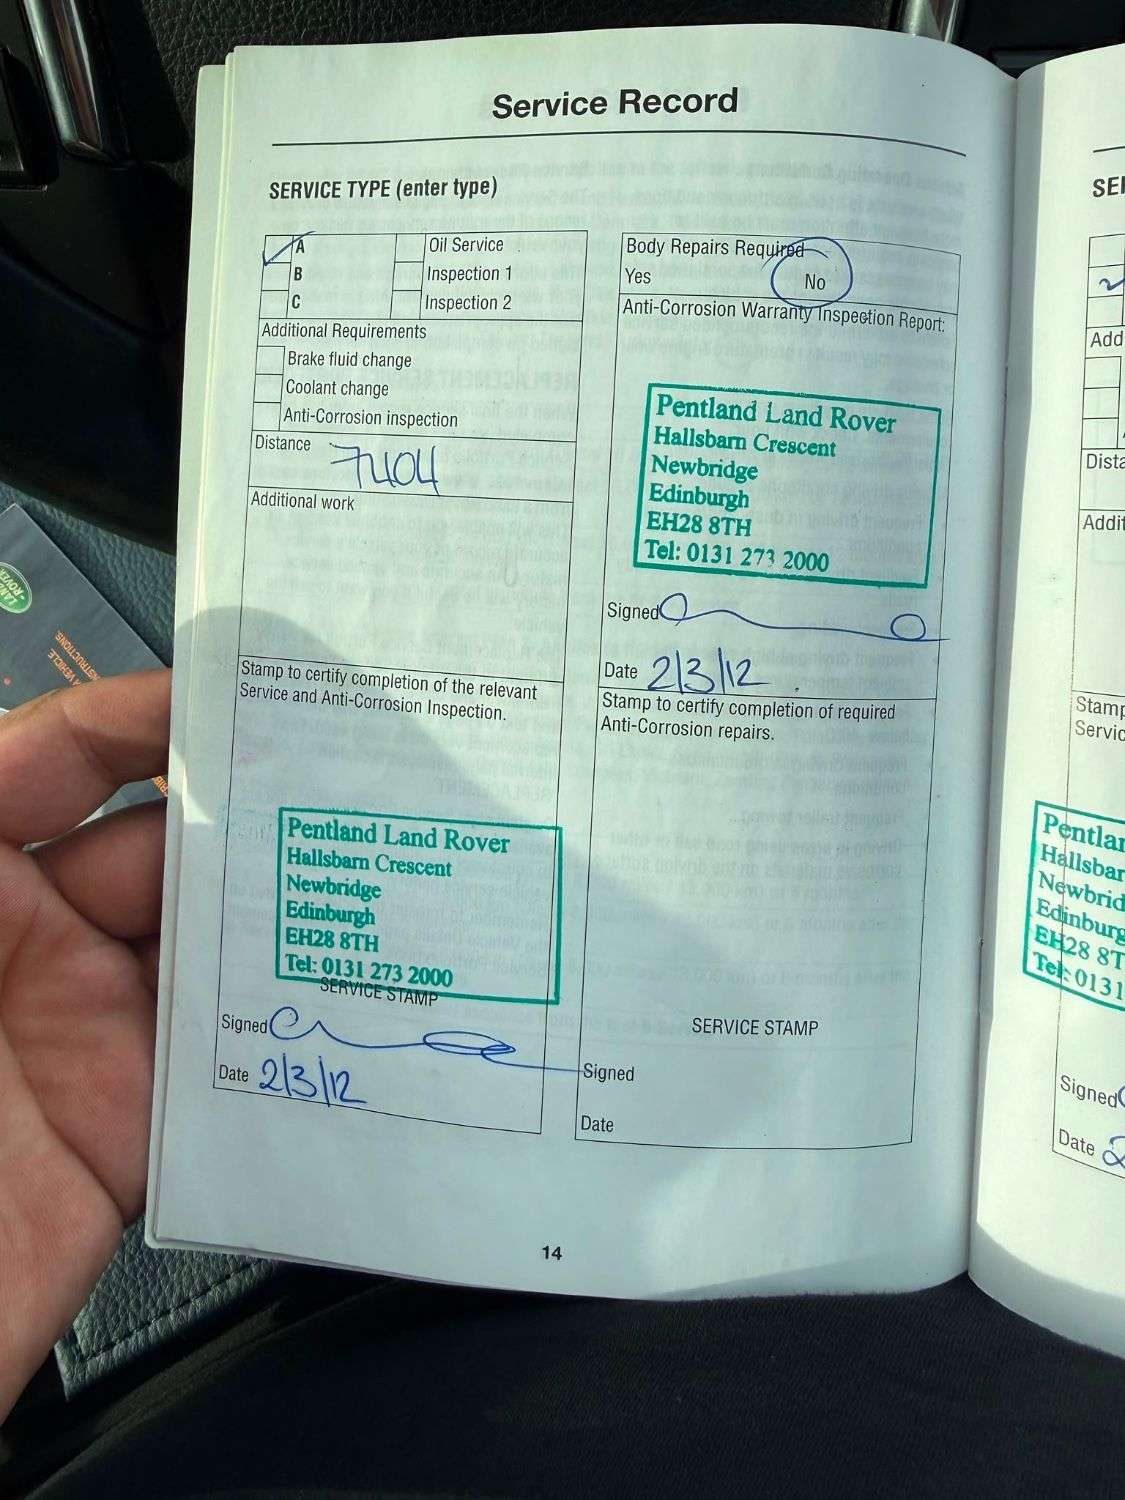 Service Record
SERVICE TYPE (enter type)
A
Oil Service
B
Inspection 1
C
Inspection 2
Additional Requirements
Brake fluid change
Coolant change
Anti-Corrosion inspection
Distance 7404
Additional work
Stamp to certify completion of the relevant
Service and Anti-Corrosion Inspection.
Pentland Land Rover
Hallsbarn Crescent
Newbridge
Edinburgh
EH28 8TH
Tel: 0131 273 2000
SERVICE STAMP
Signed
Date 2/3/12
Body Repairs Required
Yes No
Anti-Corrosion Warranty Inspection Report:
Pentland Land Rover
Hallsbarn Crescent
Newbridge
Edinburgh
EH28 8TH
Tel: 0131 273 2000
Signed
Date 2/3/12
Stamp to certify completion of required
Anti-Corrosion repairs.
SERVICE STAMP
Signed
Date
14
SER
Add
Dista
Addit
Stamp
Servic
Pentlar
Hallsbar
Newbrid
Edinburg
EH28 8T
Tel: 0131
Signed
Date 2
LAND
ROVER
VEHICLE
INSTRUCTIONS